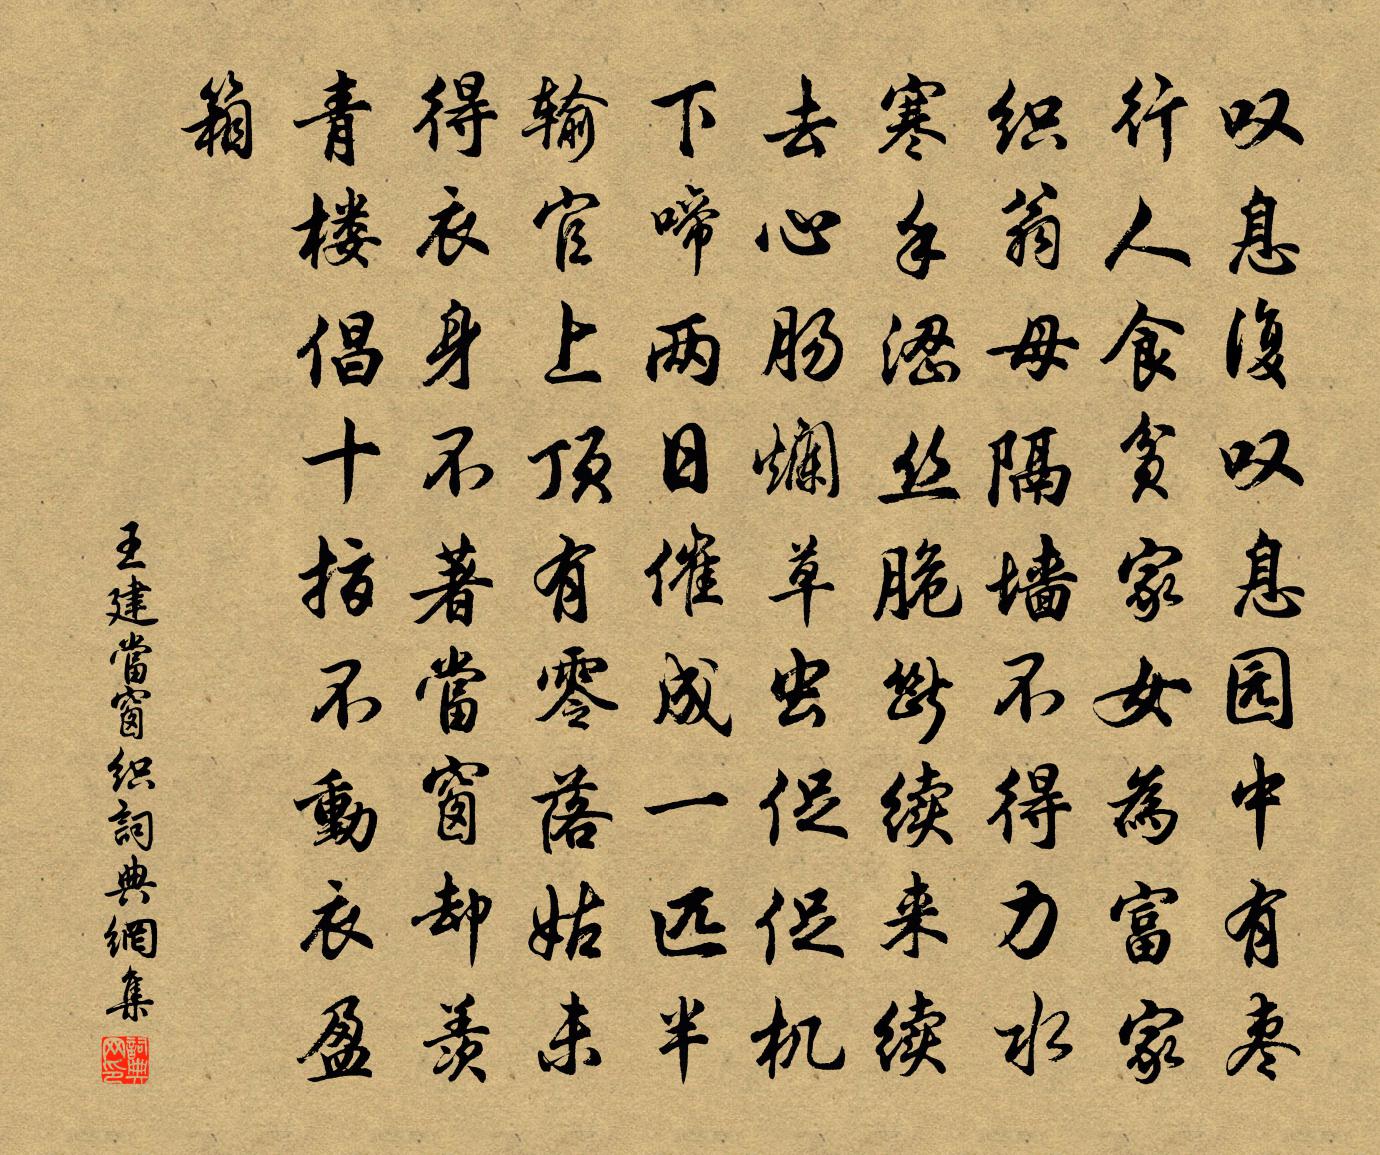 叹息復叹息园中有枣
行人食贫家女為富家
织翁母隔墙不得力水
寒手涩丝脆斷续来续
去心肠爛草虫促促机
下啼两日催成一匹半
输官上顶有零落姑未
得衣身不著當窗却羡
青楼倡十指不動衣盈
箱
王建當窗织詞典網集
詞典网印